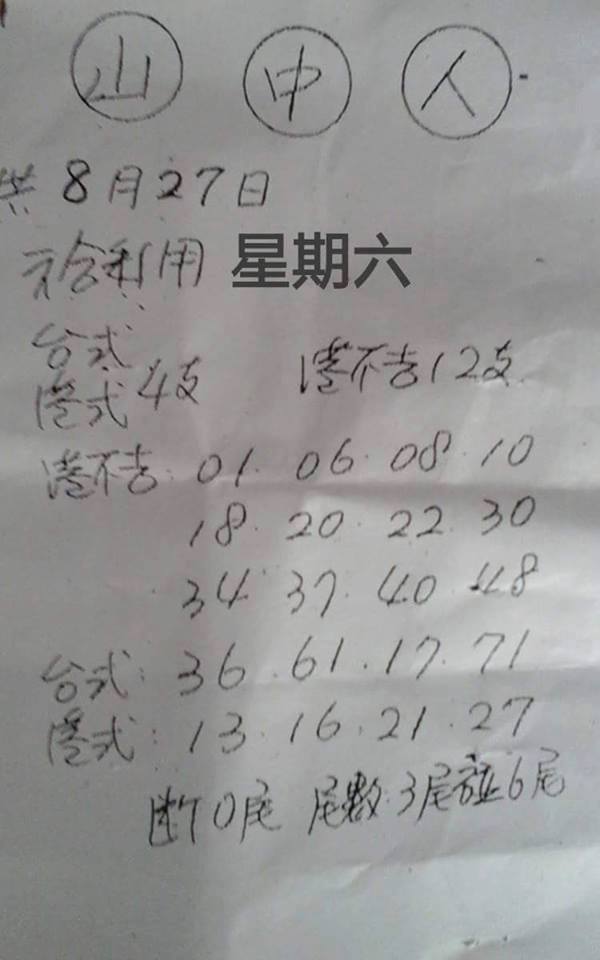 山 中 人
共 8月27日
合利用 星期六
台式
港式 4支 港不出12支
港不出: 01. 06. 08. 10
18. 20. 22. 30
34. 37. 40. 48
台式: 36. 61. 17. 71
港式: 13. 16. 21. 27
断0尾 尾数:3尾碰6尾